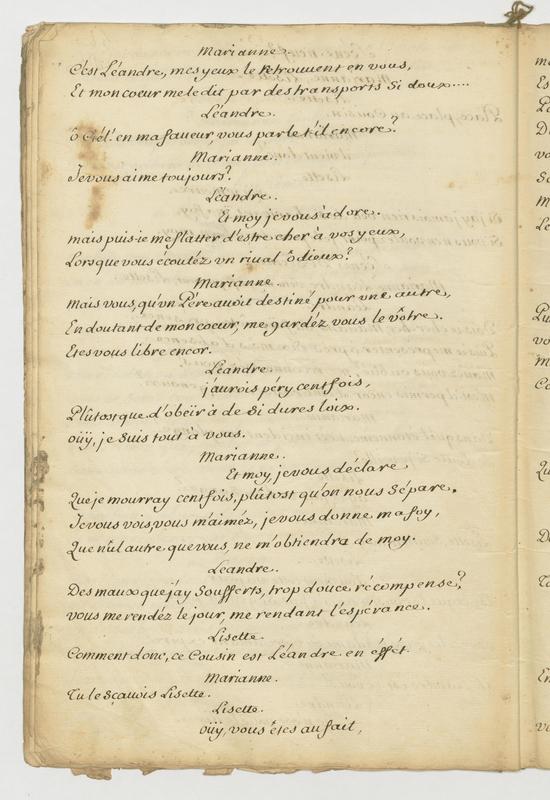 Marianne.
C'est Léandre, mes yeux le retrouvent en vous,
Et mon coeur me le dit par des transports si doux....
Léandre.
ô Ciel! en ma faueur, vous parle t'il encore?
Marianne.
Je vous aime toujours?
Léandre.
Et moy je vous adore.
mais puis-ie me flatter d'estre cher à vos yeux,
Lorsque vous écoutéz vn riual odieux?
Marianne.
mais vous, qu'vn Pére auoit destiné pour vne autre,
En doutant de mon coeur, me gardéz vous le vôtre.
Etes vous libre encor.
Léandre.
j'aurois péry cent fois,
Plûtost que d'obëir à de si dures loix.
oüÿ, je suis tout à vous.
Marianne.
Et moy, je vous déclare
Que je mourray cent fois, plûtost qu'on nous sépare.
Je vous vois, vous m'aiméz, je vous donne ma foy,
Que nul autre que vous, ne m'obtiendra de moy.
Leandre.
Des maux que jay soufferts, trop douce récompense?
vous me rendéz le jour, me rendant l'espérance.
Lisette.
Comment donc, ce Cousin est Léandre en éffét.
Marianne.
Tu le sçauois Lisette.
Lisette.
oüÿ, vous étes au fait,